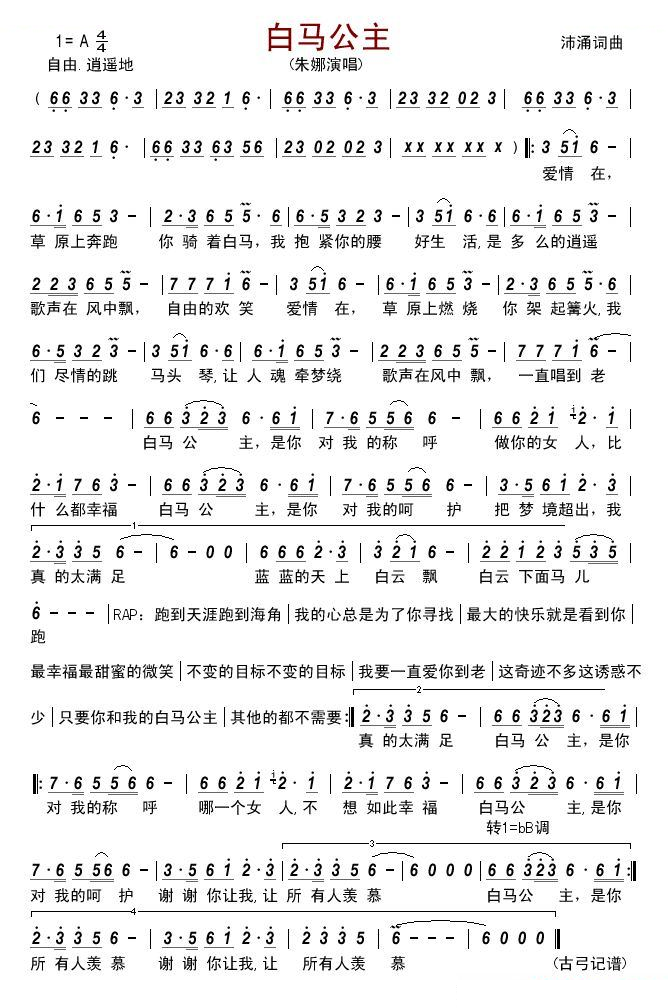 白马公主
1= A 4/4
沛涌词曲
自由.逍遥地
(朱娜演唱)
( 6 6 3 3 6 · 3 | 2 3 3 2 1 6 · | 6 6 3 3 6 · 3 | 2 3 3 2 0 2 3 | 6 6 3 3 6 · 3 |
2 3 3 2 1 6 · | 6 6 3 3 6 3 5 6 | 2 3 0 2 0 2 3 | x x x x x x x ) |: 3 5 1 6 – |
爱情 在,
6 · 1 6 5 3 – | 2 · 3 6 5 5 · 6 | 6 · 5 3 2 3 – | 3 5 1 6 · 6 | 6 · 1 6 5 3 – |
草 原上奔跑 你 骑 着白马,我 抱 紧你的腰 好生 活,是 多 么的逍遥
2 2 3 6 5 5 – | 7 7 7 1 6 – | 3 5 1 6 – | 6 · 1 6 5 3 – | 2 · 3 6 5 5 · 6 |
歌声在 风中飘, 自由的欢 笑 爱情 在, 草 原上燃 烧 你 架 起篝火,我
6 · 5 3 2 3 – | 3 5 1 6 · 6 | 6 · 1 6 5 3 – | 2 2 3 6 5 5 – | 7 7 7 1 6 – |
们 尽情的跳 马头 琴,让 人 魂 牵梦绕 歌声在风中 飘, 一直唱到 老
6 – – – | 6 6 3 2 3 6 · 6 1 | 7 · 6 5 5 6 6 – | 6 6 2 1 2 · 1 |
白马 公 主,是你 对 我 的称 呼 做你的女 人,比
2 · 1 7 6 3 – | 6 6 3 2 3 6 · 6 1 | 7 · 6 5 5 6 6 – | 3 · 5 6 1 2 · 3 |
什 么都幸福 白马 公 主,是你 对 我的呵 护 把 梦 境超出,我
1
2 · 3 3 5 6 – | 6 – 0 0 | 6 6 1 2 · 3 | 3 2 1 6 – | 2 2 1 2 3 5 3 5 |
真 的太满 足 蓝 蓝的天 上 白云 飘 白云 下面马 儿
6 – – – | RAP: 跑到天涯跑到海角 | 我的心总是为了你寻找 | 最大的快乐就是看到你
跑
最幸福最甜蜜的微笑 | 不变的目标不变的目标 | 我要一直爱你到老 | 这奇迹不多这诱惑不
2
少 | 只要你和我的白马公主 | 其他的都不需要 :| 2 · 3 3 5 6 – | 6 6 3 2 3 6 · 6 1 |
真 的太满 足 白马 公 主,是你
|: 7 · 6 5 5 6 6 – | 6 6 2 1 2 · 1 | 2 · 1 7 6 3 – | 6 6 3 2 3 6 · 6 1 |
对 我的称 呼 哪一个女 人,不 想 如此幸 福 白马公 主,是你
转1=bB调
3
7 · 6 5 5 6 6 – | 3 · 5 6 1 2 · 3 | 2 · 3 3 5 6 – | 6 0 0 0 | 6 6 3 2 3 6 · 6 1 :|
对 我的呵 护 谢 谢 你让我,让 所 有人羡 慕 白马公 主,是你
4
2 · 3 3 5 6 – | 3 · 5 6 1 2 · 3 | 2 · 3 3 5 6 – – – | 6 0 0 0 |
所 有人羡 慕 谢 谢 你让我,让 所 有人羡 慕 (古弓记谱)